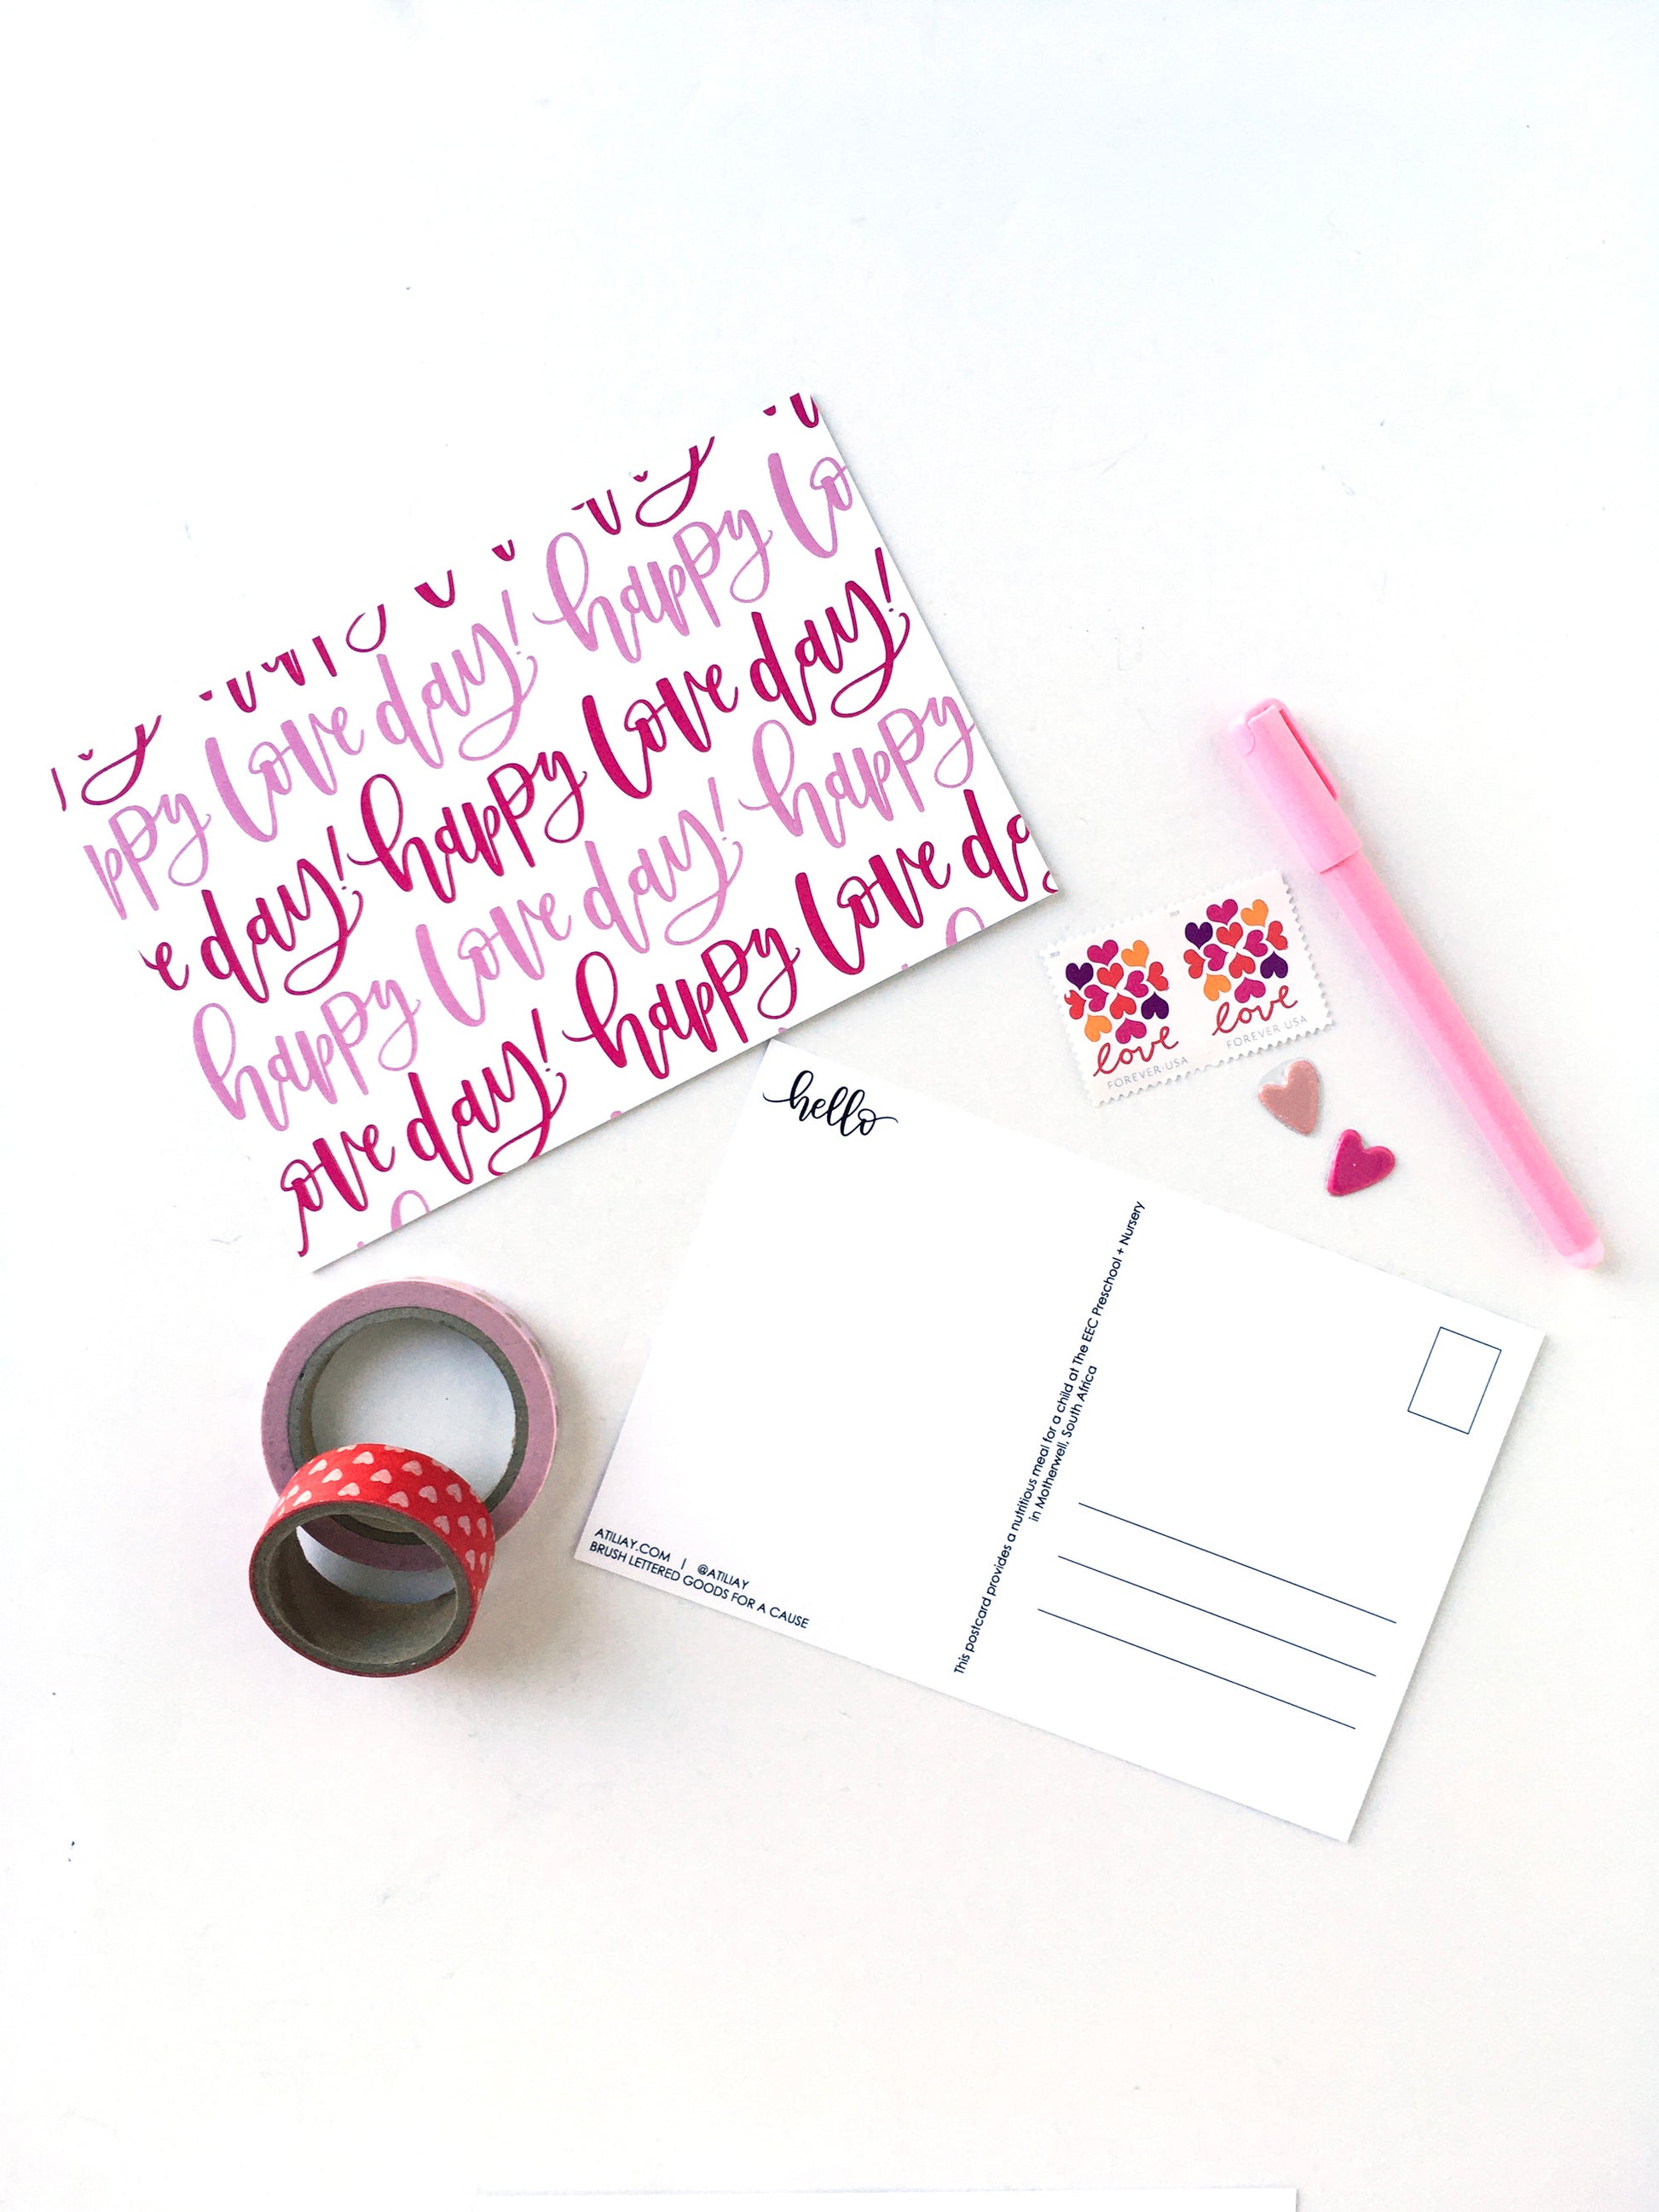 ppy love day! happy lo
e day! happy love day!
happy love day! happy
ove day! happy love da
love
FOREVER·USA
love
FOREVER USA
hello
This postcard provides a nutritious meal for a child at The EEC Preschool + Nursery
in Motherwell, South Africa
ATILIAY.COM | @ATILIAY
BRUSH LETTERED GOODS FOR A CAUSE